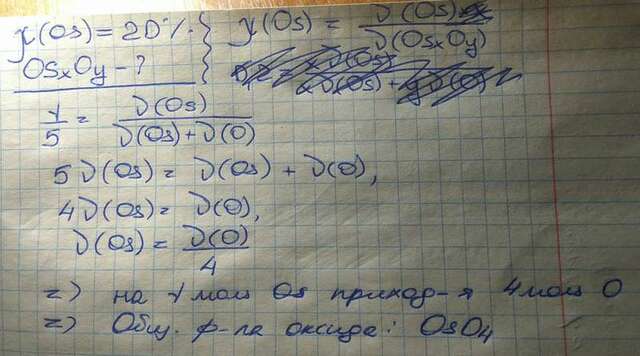 χ(Os) = 20%.
χ(Os) = ν(Os) / ν(OsxOy)
OsxOy - ?
1/5 = ν(Os) / ν(Os)+ν(O)
5ν(Os) = ν(Os) + ν(O),
4ν(Os) = ν(O),
ν(Os) = ν(O) / 4
=> на 1 моль Os приход-я 4 моль O
=> Общ. ф-ла оксида: OsO4